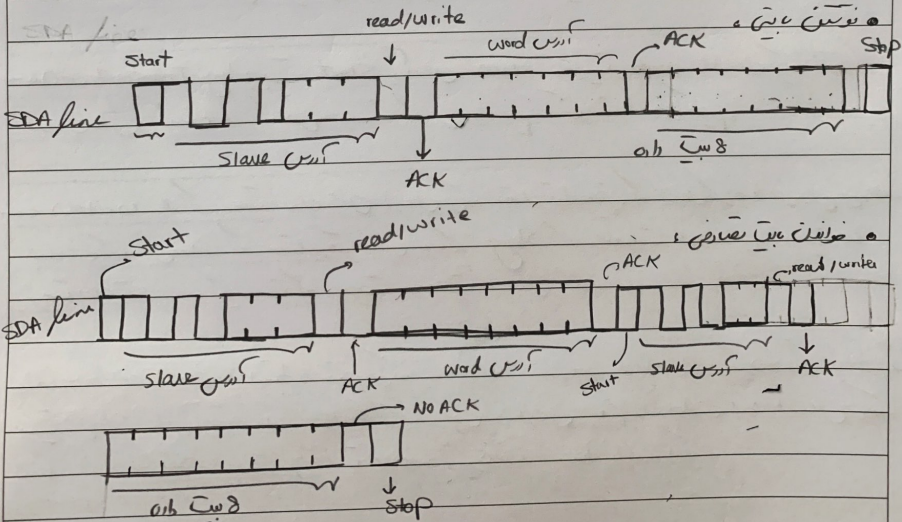 نوشتن بایتی :
read/write
Start
آدرس word
ACK
Stop
SDA line
آدرس Slave
ACK
8 بیت داده
خواندن بایت تصادفی :
Start
read/write
ACK
read/write
SDA line
آدرس Slave
ACK
آدرس word
Start
آدرس Slave
ACK
NO ACK
8 بیت داده
Stop